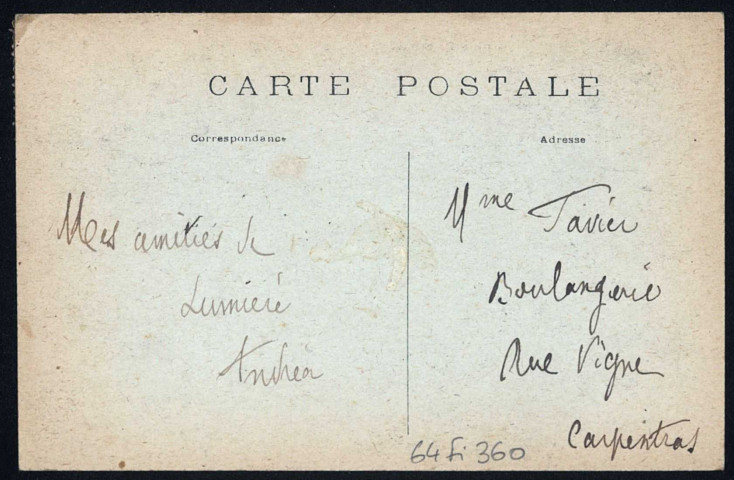 CARTE POSTALE
Correspondance
Adresse
Mes amitiés de
Lumière
Andréa
Mme Tavier
Boulangerie
Rue Vigne
Carpentras
64 fi 360